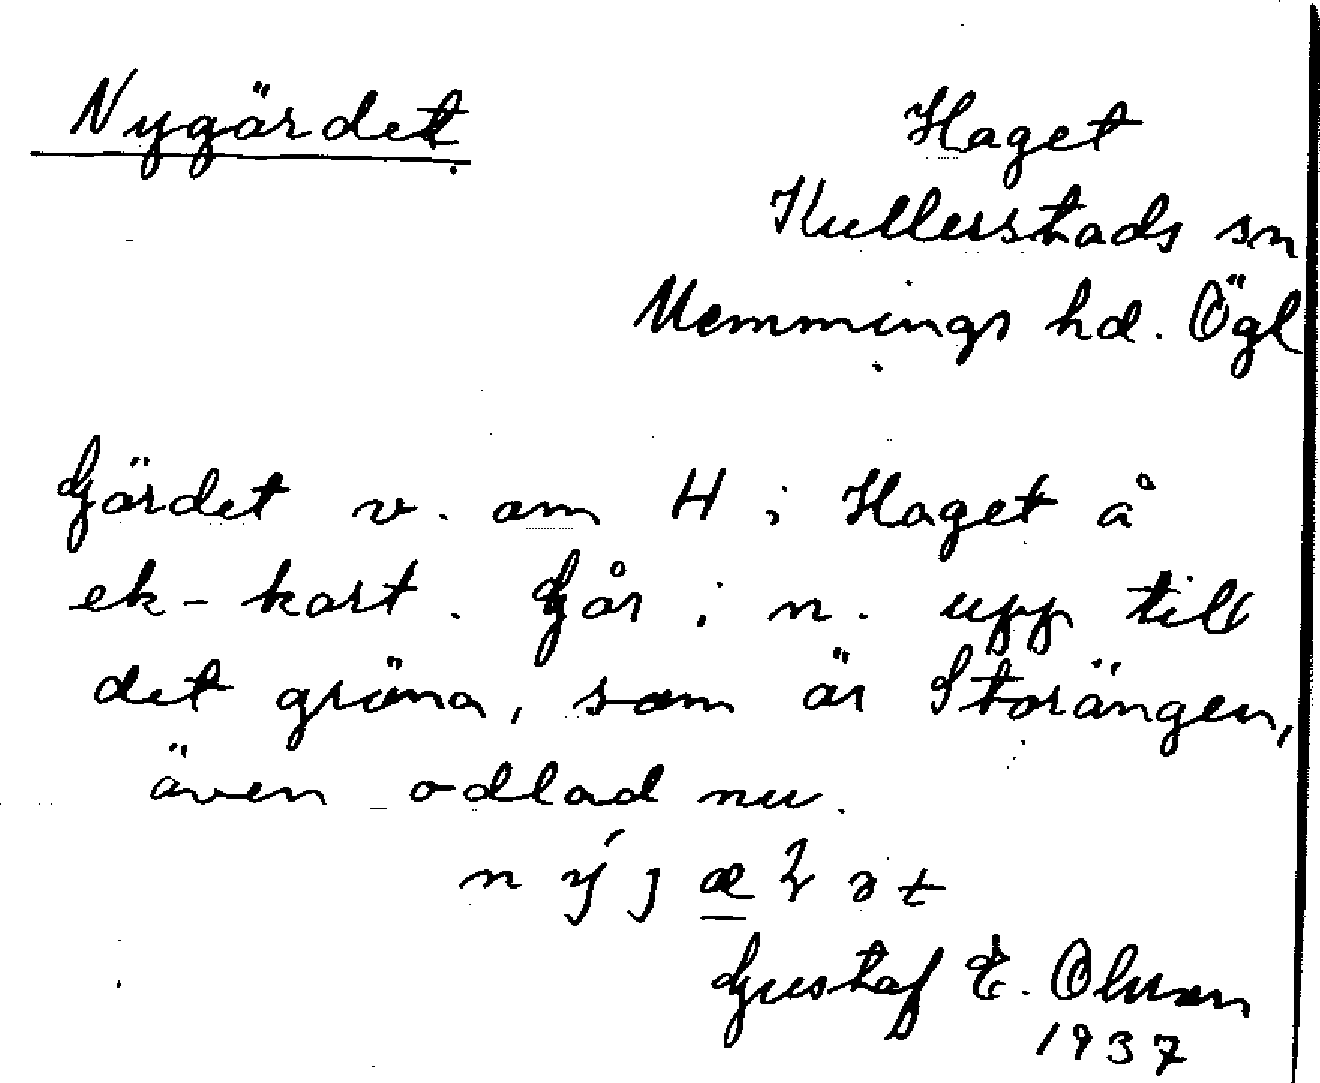 Nygärdet
Haget
Kullerstads sn
Memmings hd. Ögl
Gärdet v. om H i Haget å
ek-kart. Går i n. upp till
det gröna, som är Storängen,
även odlad nu.
Gustaf E. Olsson
1937